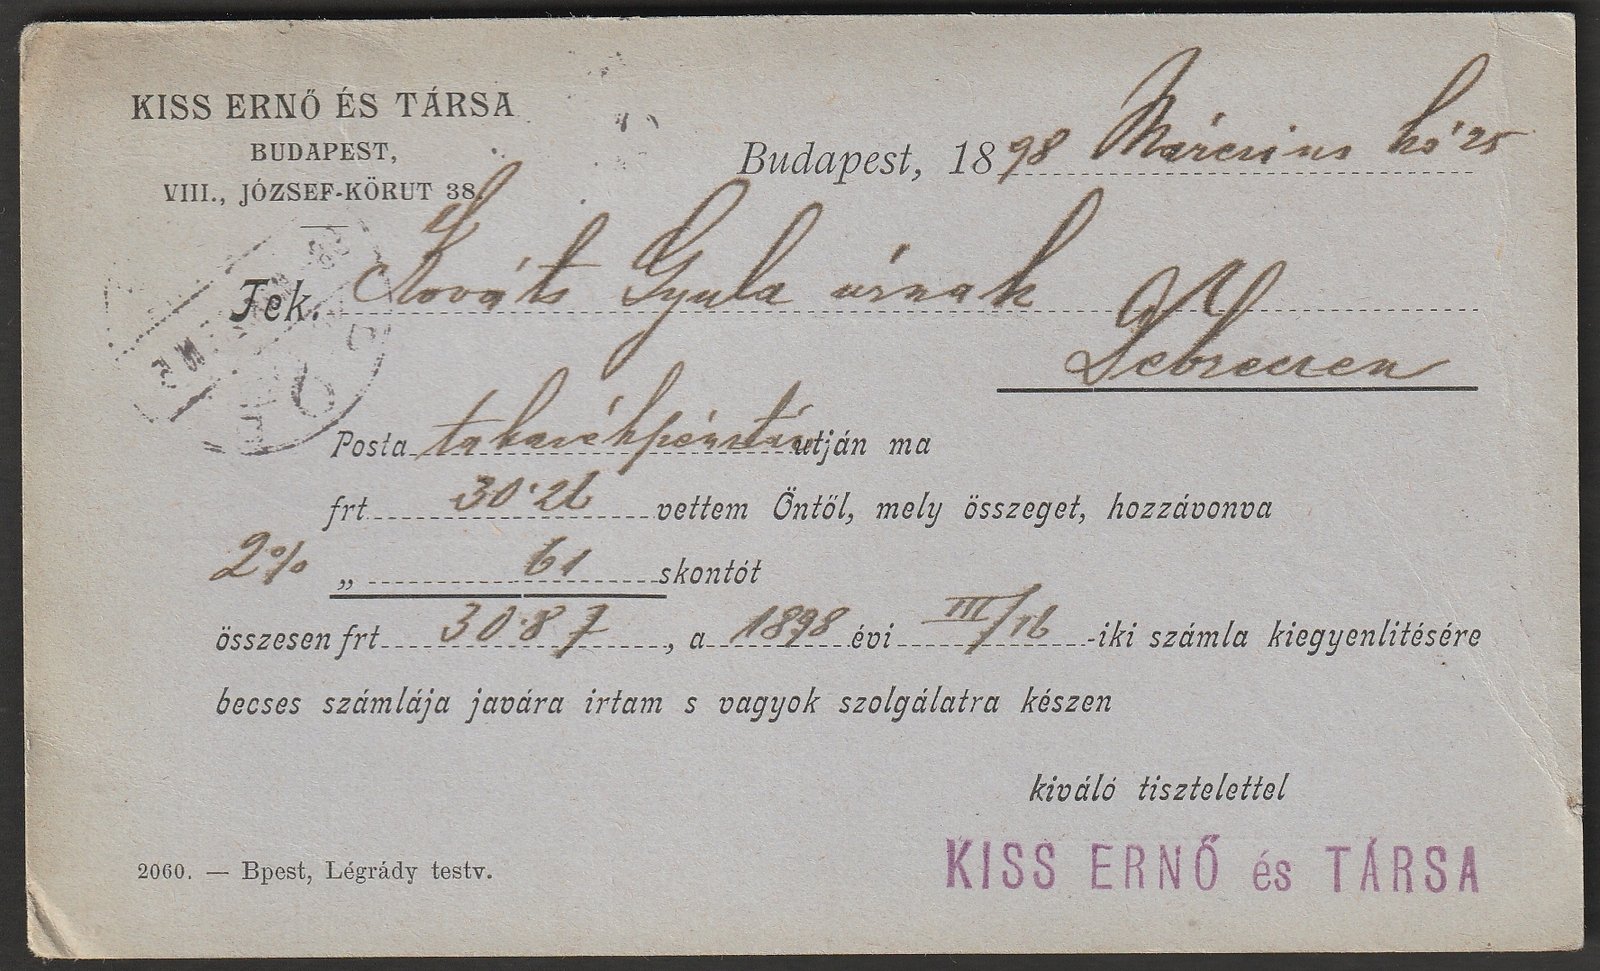 KISS ERNŐ ÉS TÁRSA
BUDAPEST,
VIII., JÓZSEF-KÖRUT 38.
Budapest, 1898 Március hó 25
Tek. Kováts Gyula úrnak
Debreczen
Posta takarékpénztár utján ma
frt 30·26 vettem Öntől, mely összeget, hozzávonva
2% „ 61 skontót
összesen frt 30·87, a 1898 évi III/16 -iki számla kiegyenlitésére
becses számlája javára irtam s vagyok szolgálatra készen
kiváló tisztelettel
KISS ERNŐ és TÁRSA
2060. — Bpest, Légrády testv.